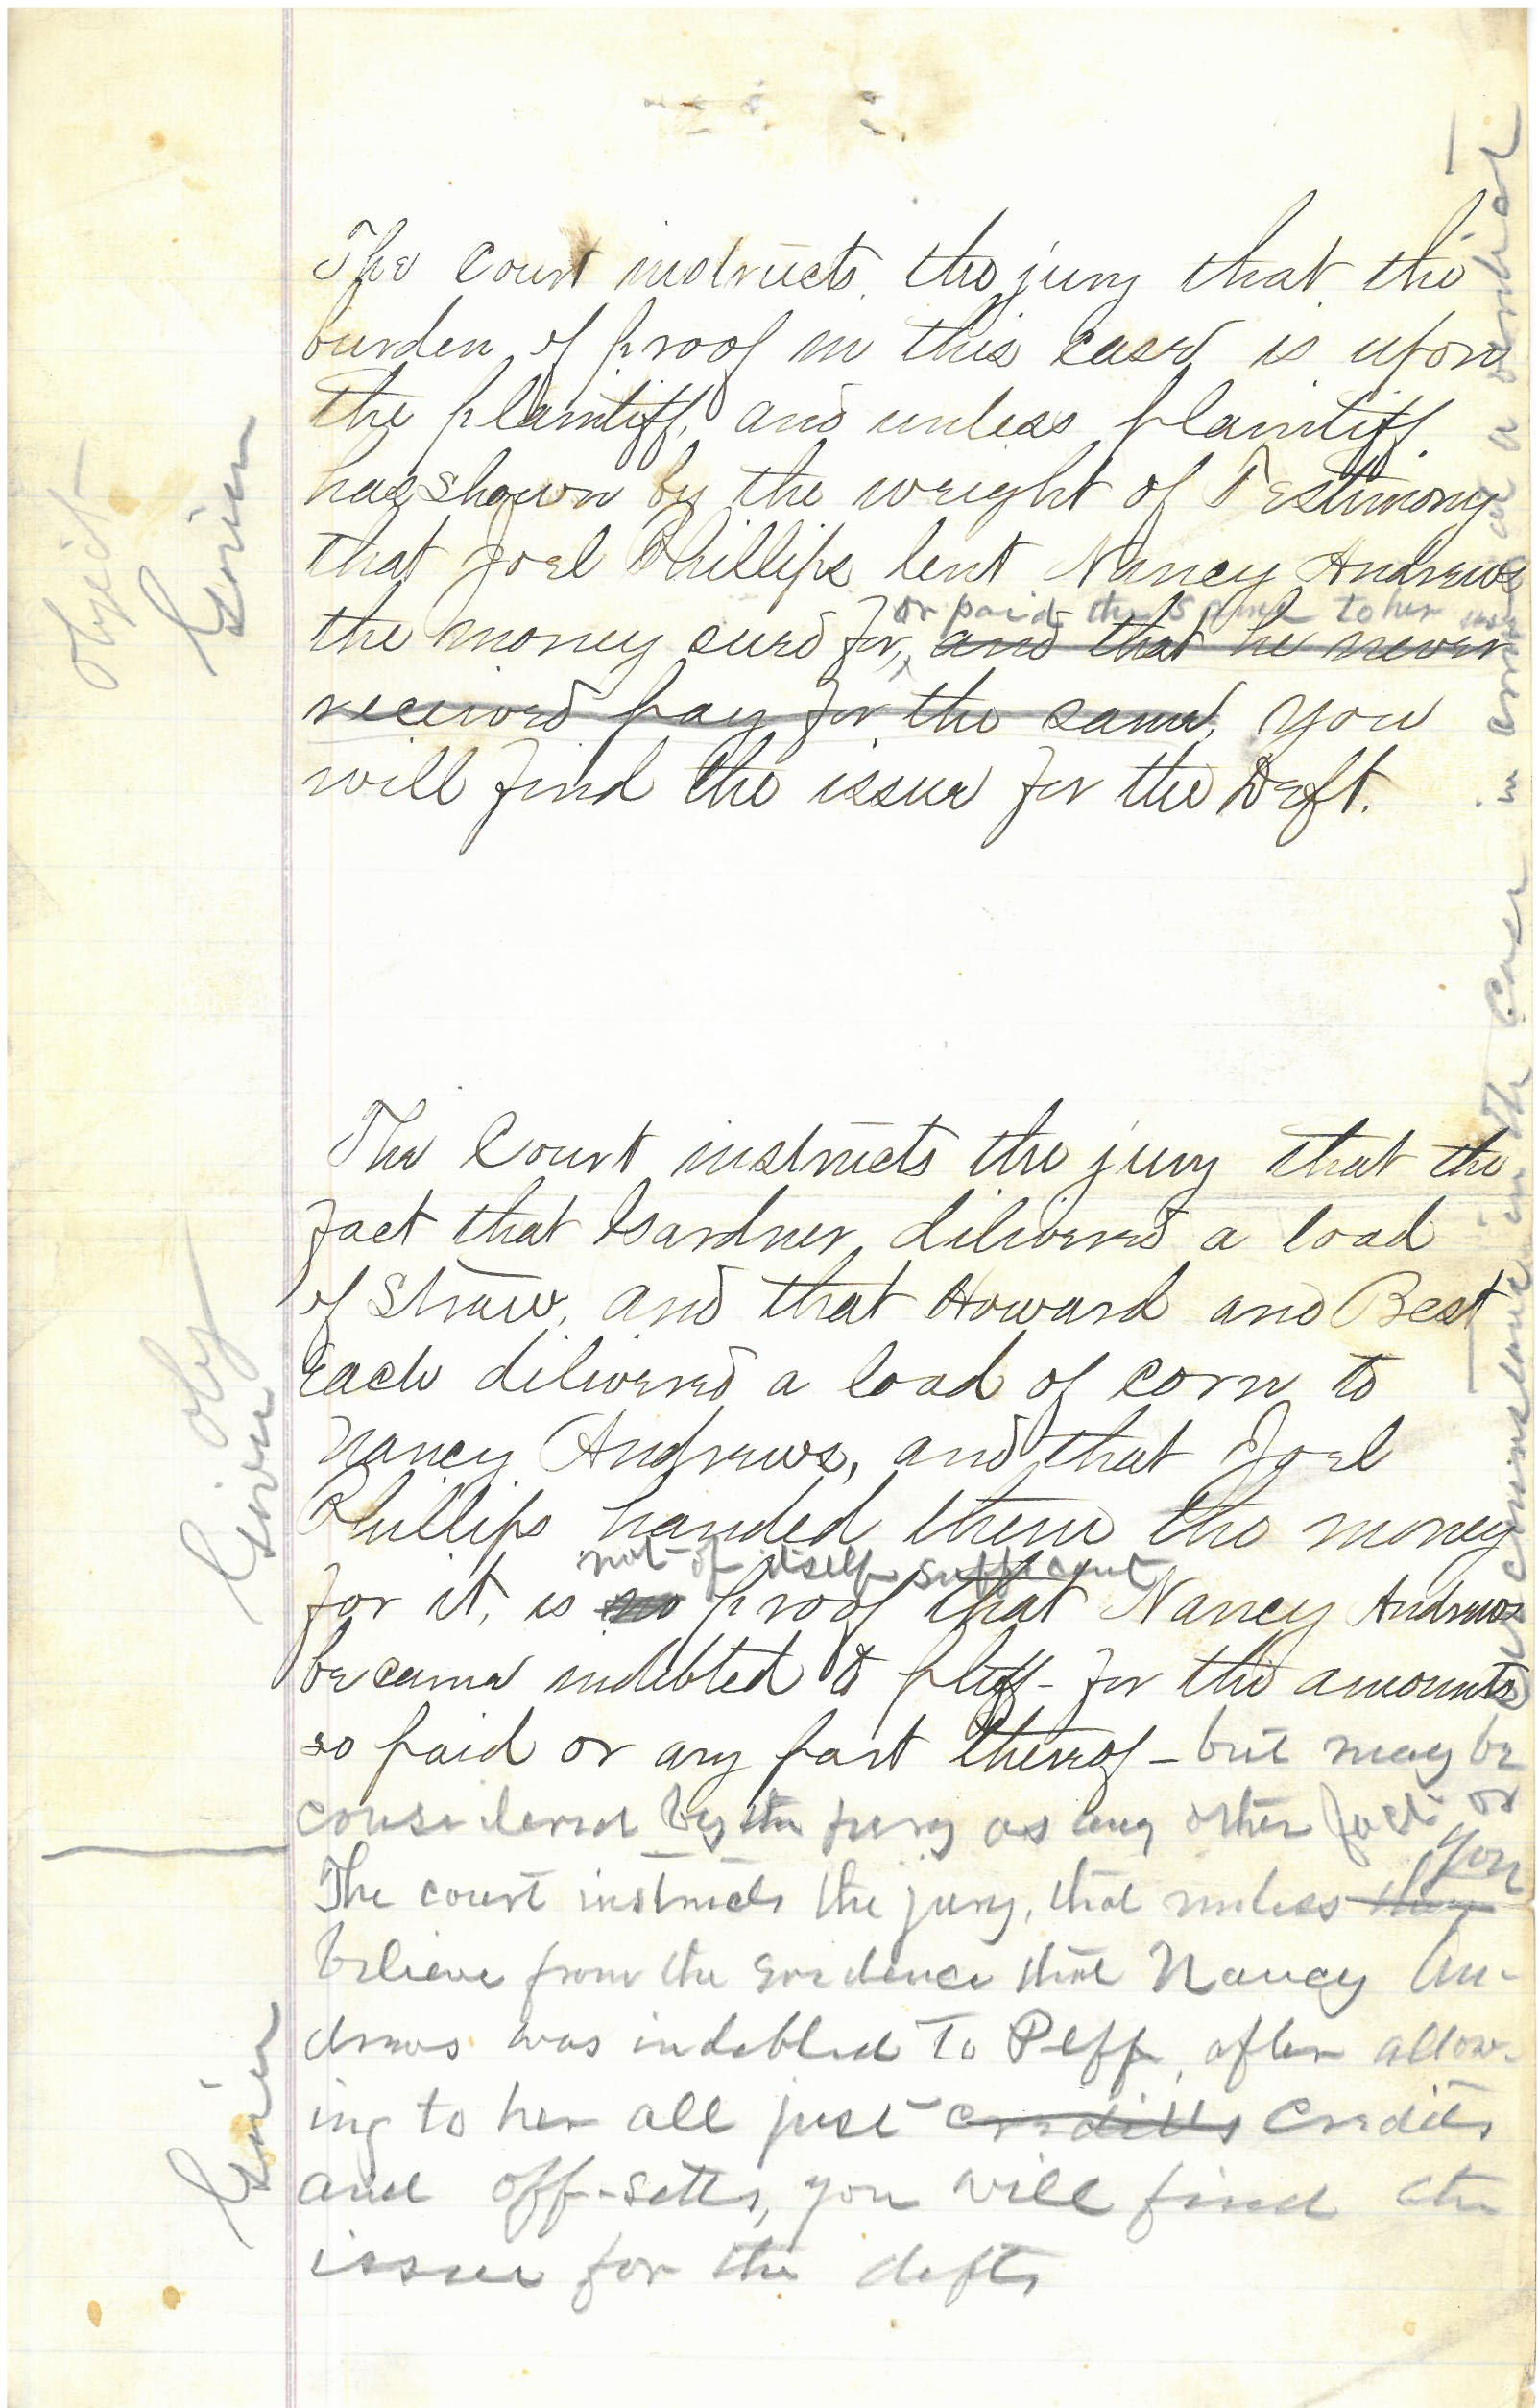 The Court instructs the jury that the
burden of proof in this case is upon
the plaintiff, and unless plaintiff
has shown by the weight of Testimony
that Joel Phillips lent Nancy Andrews
or paid the same to her use
the money sued for, and that he never
received pay for the same, you
will find the issue for the Deft.
Object
Given
The Court instructs the jury that the
fact that Gardner delivered a load
of Straw, and that Howard and Best
Each delivered a load of corn to
Nancy Andrews, and that Joel
Phillips handed them the money
not of itself sufficient
for it, is no proof that Nancy Andrews
became indebted to plff - for the amounts
so paid or any part thereof - but may be
considered by the jury as any other fact or
circumstance in the case in arriving at a verdict
Obj
Given
you
The court instructs the jury, that unless they
believe from the evidence that Nancy An-
drews was indebted to Plff, after allow-
ing to her all just credits Credits
and off-setts, you will find the
issue for the defts
Given